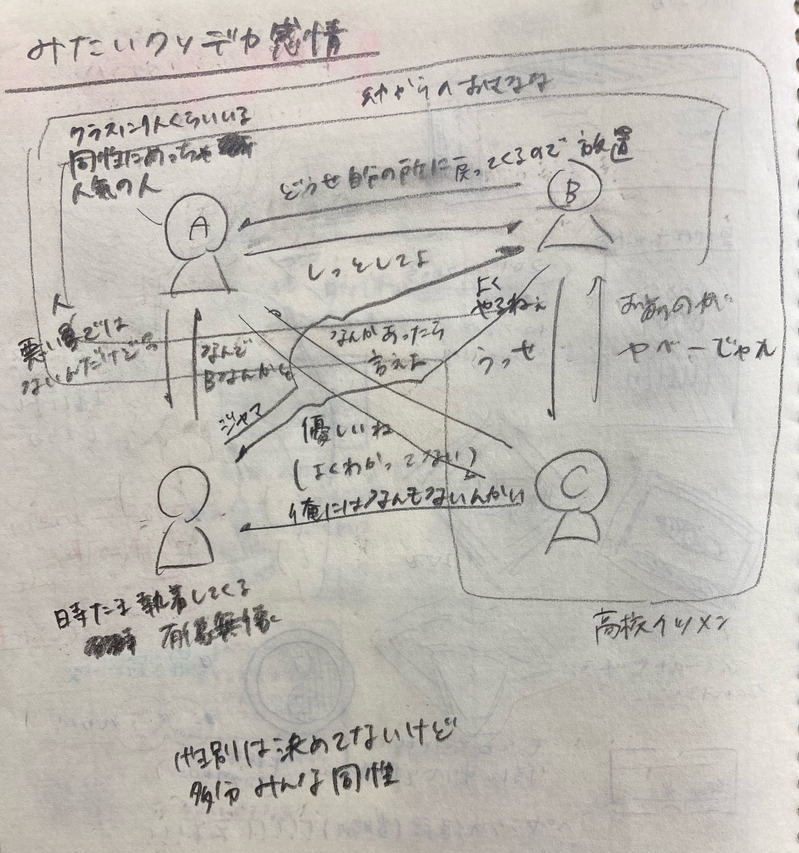 みたいクソデカ感情
幼からのおさななな
クラスに1人くらいいる
同性にめっちゃ
人気の人
どうせ自分の所に戻ってくるので放置
A
B
しっとしてよ
人
悪い男では
ないんだけどな
なんで
Bなんかと
なんかあったら
言えよ
よく
やるねぇ
うっせ
お前のが
ヤベーじゃん
ジャマ
優しいね
(よくわかってない)
俺にはなんもないんかい
C
時たま執着してくる
有象無象
高校イツメン
性別は決めてないけど
多分みんな同性